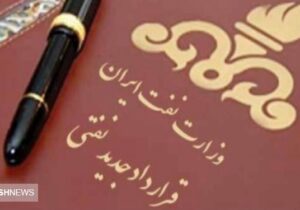 وزارت نفت ایران
قرارداد جدید نفتی
SHNEWS